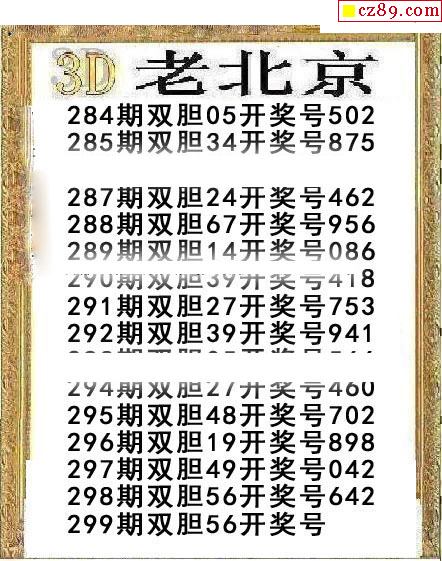 cz89.com
3D 老北京
284期双胆05开奖号502
285期双胆34开奖号875
287期双胆24开奖号462
288期双胆67开奖号956
289期双胆14开奖号086
290期双胆39开奖号418
291期双胆27开奖号753
292期双胆39开奖号941
294期双胆27开奖号460
295期双胆48开奖号702
296期双胆19开奖号898
297期双胆49开奖号042
298期双胆56开奖号642
299期双胆56开奖号